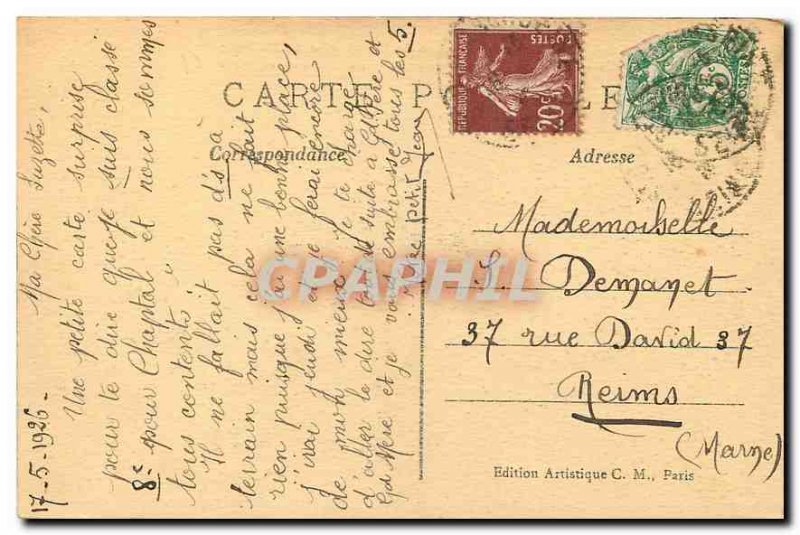 CARTE POSTALE
Correspondance
Adresse
17-5-1926-
Ma Chère Suzette,
Une petite carte surprise
pour te dire que je suis classé
8e pour Chaptal et nous sommes
tous contents
Il ne fallait pas d's à
terrain mais cela ne fait
rien puisque j'ai une bonne place,
J'irai jeudi et je ferai encore
de mon mieux. Je te charge
d'aller le dire tout de suite à G Père et
Gd Mère et je vous embrasse tous les 5.
Petit Jean
Mademoiselle
S. Demanet
37 rue David 37
Reims
(Marne)
Edition Artistique C. M., Paris
REPUBLIQUE FRANÇAISE
POSTES
20c
5
CPAPHIL